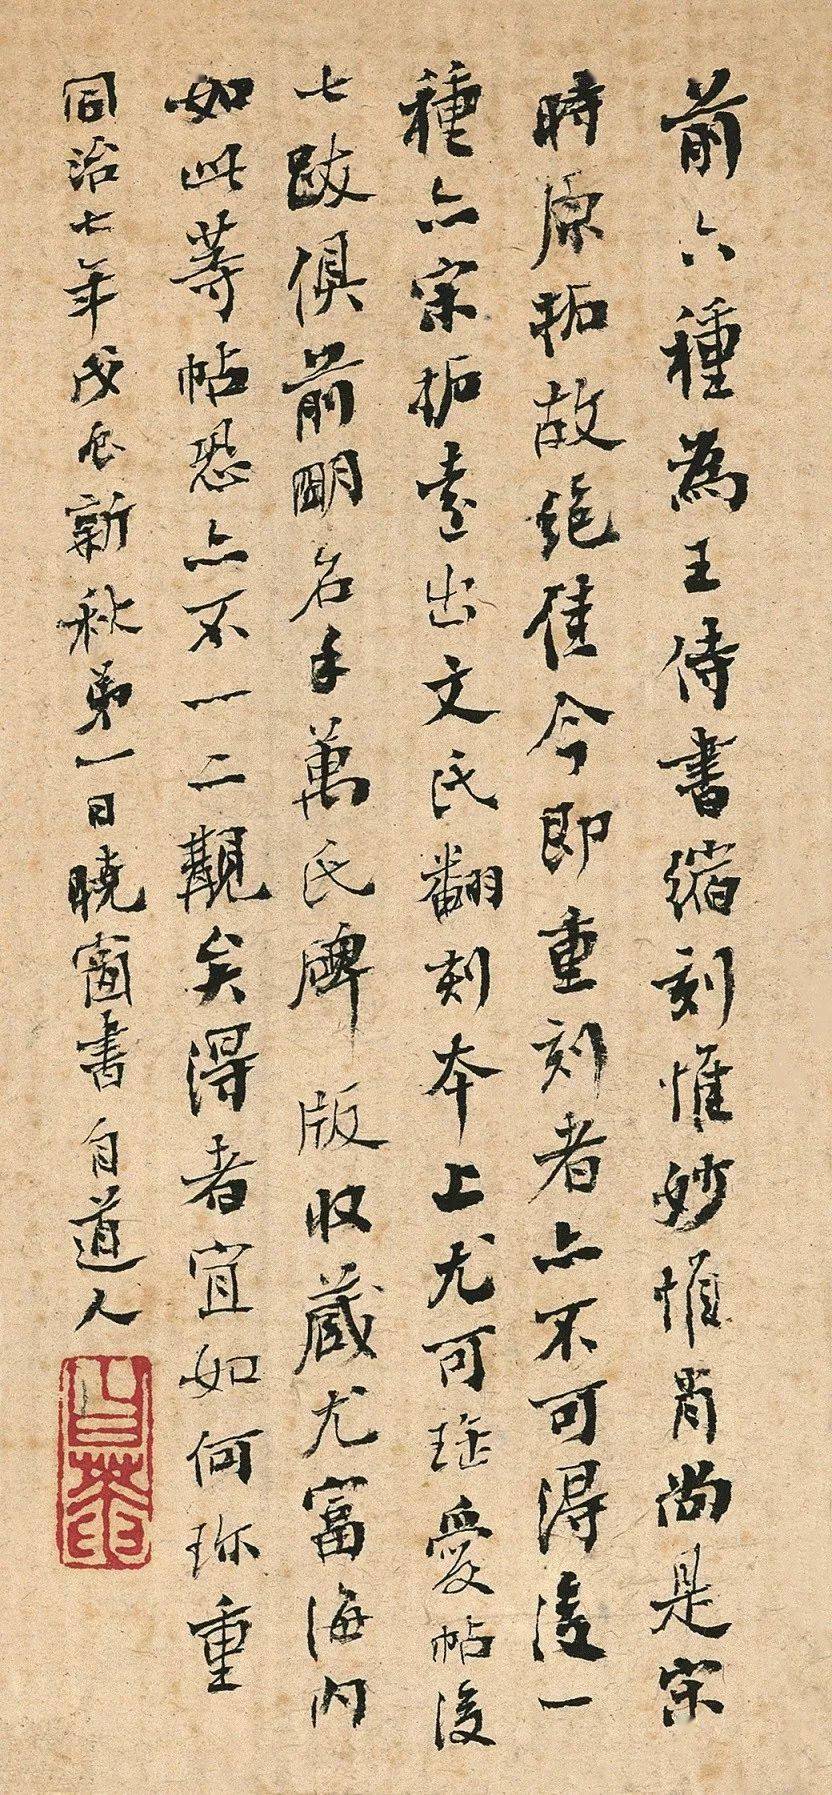 前六種為王侍書縮刻惟妙惟肖尚是宋
時原拓故絕佳今即重刻者亦不可得後一
種亦宋拓遠出文氏翻刻本上尤可珍愛帖後
七跋俱前明名手萬氏碑版收藏尤富海内
如此等帖恐亦不一二觀矣得者宜如何珍重
同治七年戊辰新秋弟一日曉窗書自道人